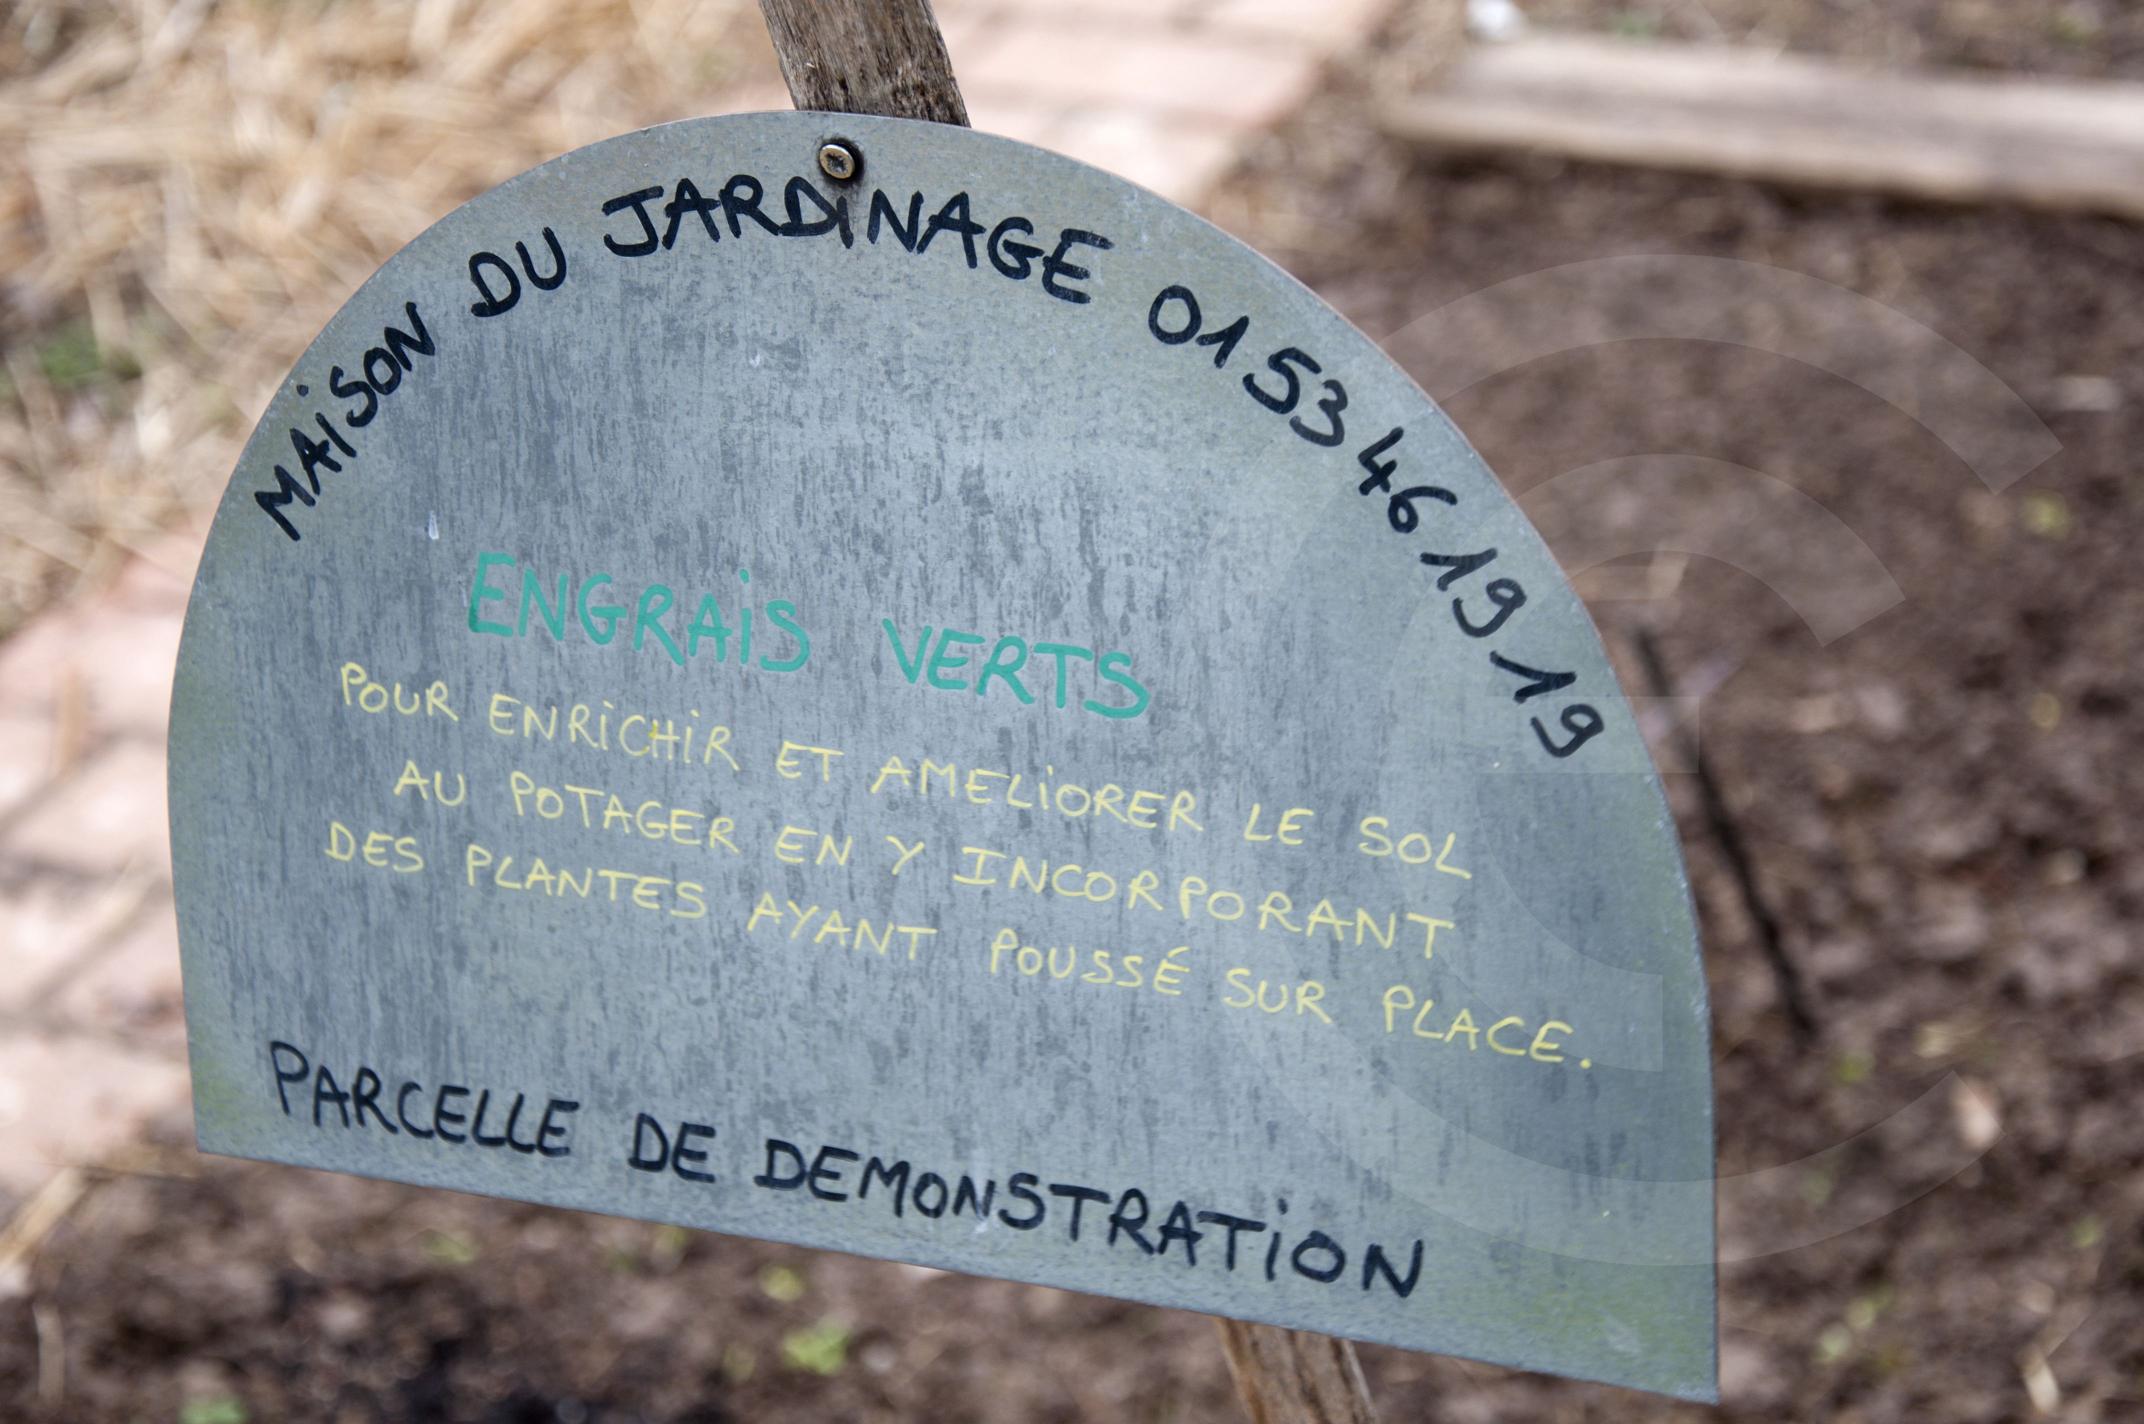 MAiSON DU JARDiNAGE 01 53 46 19 19
ENGRAiS VERTS
POUR ENRiCHiR ET AMELiORER LE SOL
AU POTAGER EN Y INCORPORANT
DES PLANTES AYANT POUSSÉ SUR PLACE.
PARCELLE DE DEMONSTRATiON